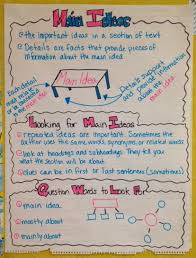 Main Ideas
the important ideas in a section of text
Details are facts that provide pieces of
information about the main idea
Each detail
must relate
or be linked to
the main idea
Main Idea
Details support
and provide information
about the
main idea
Looking for Main Ideas
repeated ideas are important. Sometimes the
author uses the same words, synonyms, or related words
look at headings and subheadings. They tell you
what the section will be about.
clues can be in first or last sentences (sometimes)
Question Words to Look For
main idea
mostly about
mainly about